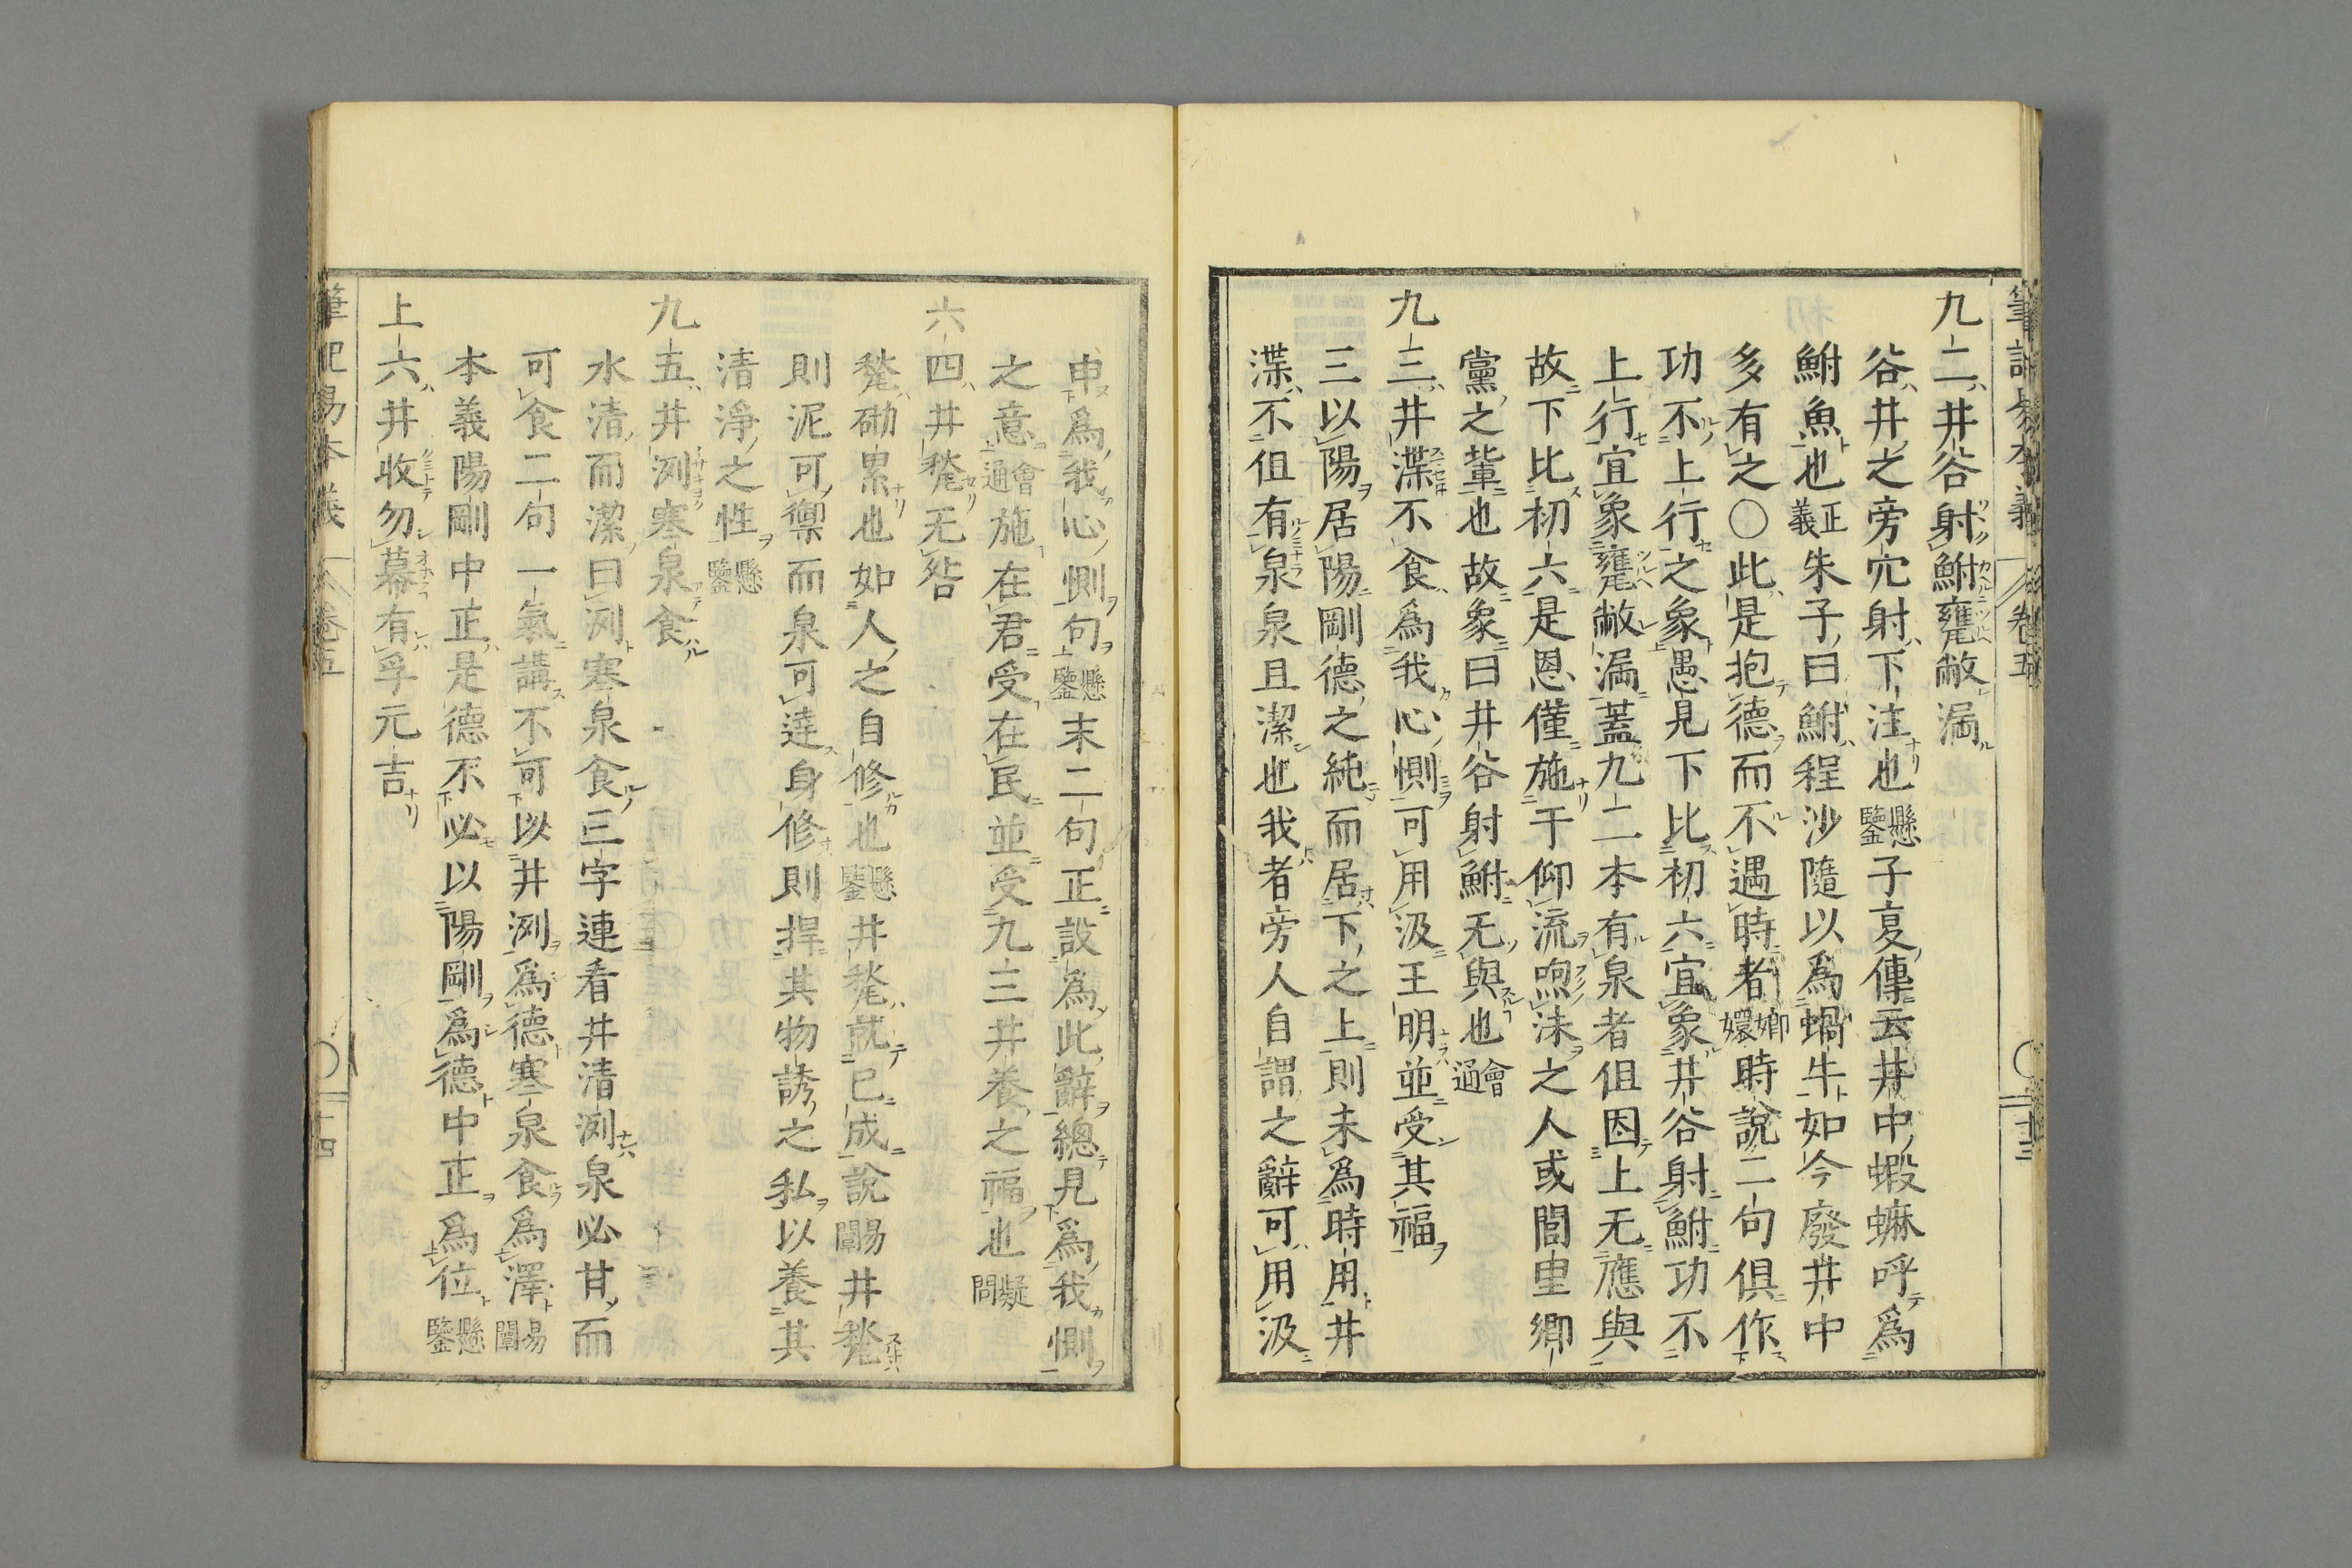 筆記易本義 卷五 十三
九二井谷射鮒甕敝漏
谷井之旁穴射下注也懸鑒子夏傳云井中蝦蟆呼為
鮒魚也正義朱子曰鮒程沙隨以為蝸牛如今廢井中
多有之〇此是抱德而不遇時者嫏嬛時說二句俱作
功不上行之象愚見下比初六宜象井谷射鮒功不
上行宜象甕敝漏蓋九二本有泉者但因上无應與
故下比初六是恩僅施于仰流喣沫之人或閭里鄉
黨之輩也故象曰井谷射鮒无與也會通
九三井渫不食為我心惻可用汲王明並受其福
三以陽居陽剛德之純而居下之上則未為時用井
渫不但有泉泉且潔也我者旁人自謂之辭可用汲
申為我心惻句懸鑒末二句正設為此辭總見為我惻
之意會通施在君受在民並受九三井養之福也疑問
六四井甃无咎
甃砌累也如人之自修也懸鑒井甃就已成說易闡井甃
則泥可禦而泉可達身修則捍其物誘之私以養其
清淨之性懸鑒
九五井洌寒泉食
水清而潔曰洌寒泉食三字連看井清洌泉必甘而
可食二句一氣講不可以井洌為德寒泉食為澤易闡
本義陽剛中正是德不必以陽剛為德中正為位懸鑒
上六井收勿幕有孚元吉
筆記易本義 卷五 十四